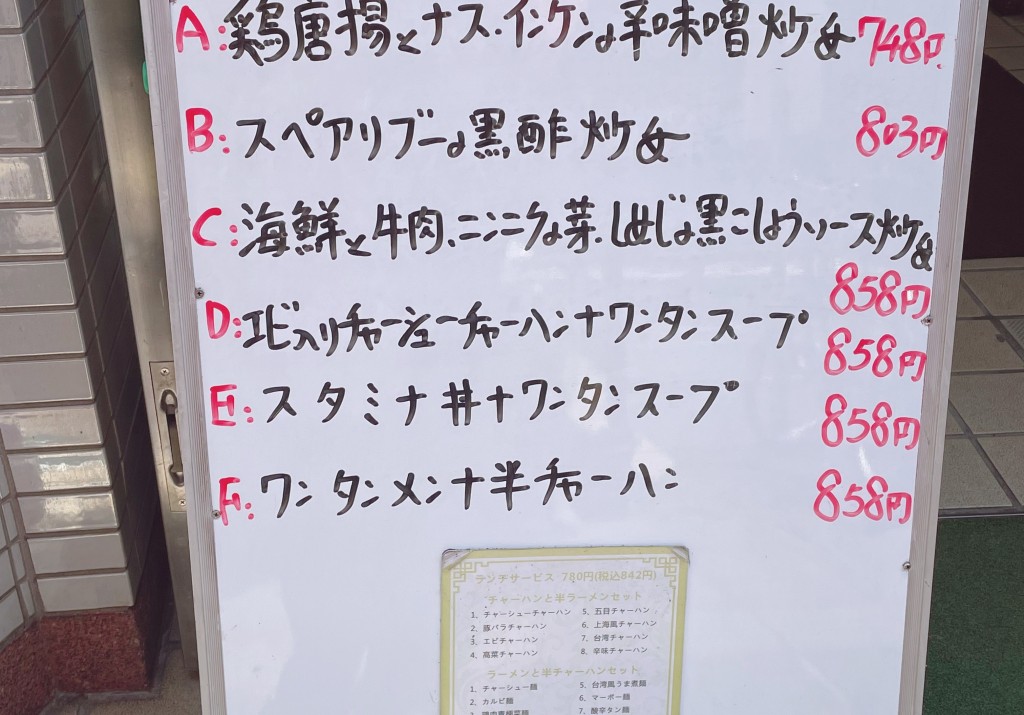 A:鶏唐揚とナス.インゲンの辛味噌炒め748円
B:スペアリブーの黒酢炒め 803円
C:海鮮と牛肉、ニンニクの芽.しめじの黒こしょうソース炒め
858円
D:エビ入りチャーシューチャーハン+ワンタンスープ 858円
E:スタミナ丼+ワンタンスープ 858円
F:ワンタンメン+半チャーハン 858円
ランチサービス 780円(税込842円)
チャーハンと半ラーメンセット
1、チャーシューチャーハン 5、五目チャーハン
2、豚バラチャーハン 6、上海風チャーハン
3、エビチャーハン 7、台湾チャーハン
4、高菜チャーハン 8、辛味チャーハン
ラーメンと半チャーハンセット
1、チャーシュー麺 5、台湾風うま煮麺
2、カルビ麺 6、マーボー麺
7、酸辛タン麺